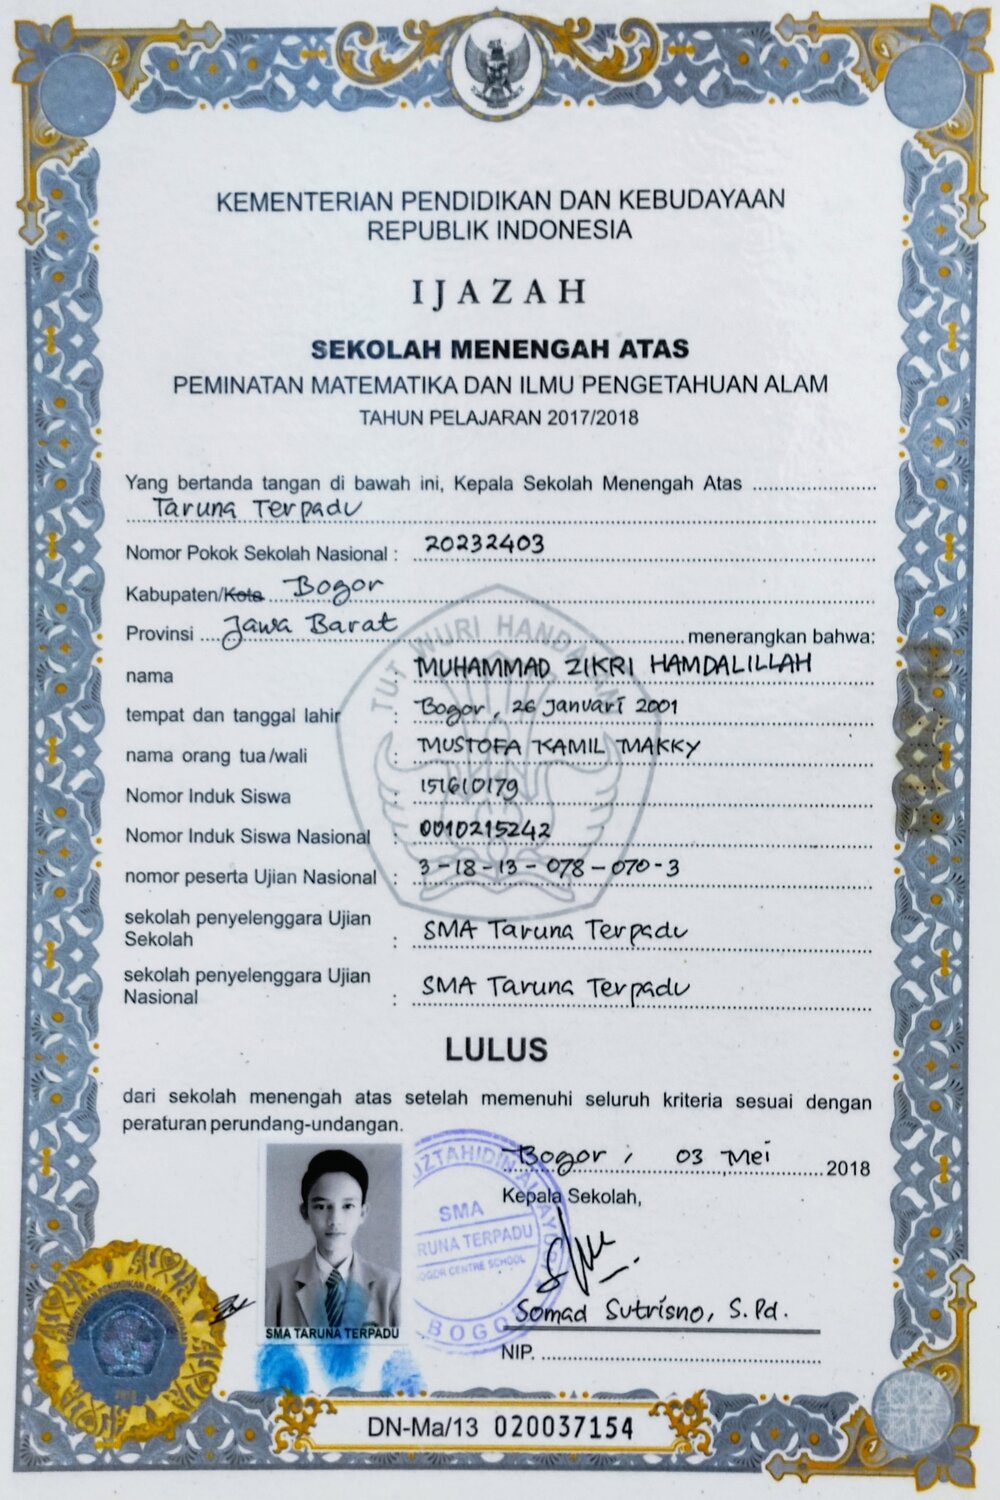 KEMENTERIAN PENDIDIKAN DAN KEBUDAYAAN
REPUBLIK INDONESIA
IJAZAH
SEKOLAH MENENGAH ATAS
PEMINATAN MATEMATIKA DAN ILMU PENGETAHUAN ALAM
TAHUN PELAJARAN 2017/2018
Yang bertanda tangan di bawah ini, Kepala Sekolah Menengah Atas
Taruna Terpadu
Nomor Pokok Sekolah Nasional : 20232403
Kabupaten/Kota Bogor
Provinsi Jawa Barat menerangkan bahwa:
TUT WURI HANDAYANI
nama : MUHAMMAD ZIKRI HAMDALILLAH
tempat dan tanggal lahir : Bogor, 26 Januari 2001
nama orang tua/wali : MUSTOFA KAMIL MAKKY
Nomor Induk Siswa : 151610179
Nomor Induk Siswa Nasional : 0010215242
nomor peserta Ujian Nasional : 3-18-13-078-070-3
sekolah penyelenggara Ujian
Sekolah : SMA Taruna Terpadu
sekolah penyelenggara Ujian
Nasional : SMA Taruna Terpadu
LULUS
dari sekolah menengah atas setelah memenuhi seluruh kriteria sesuai dengan
peraturan perundang-undangan.
Bogor, 03 Mei 2018
Kepala Sekolah,
SMA
RUNA TERPADU
OGOR CENTRE SCHOOL
BOGOR
Somad Sutrisno, S.Pd.
NIP.
SMA TARUNA TERPADU
DN-Ma/13 020037154